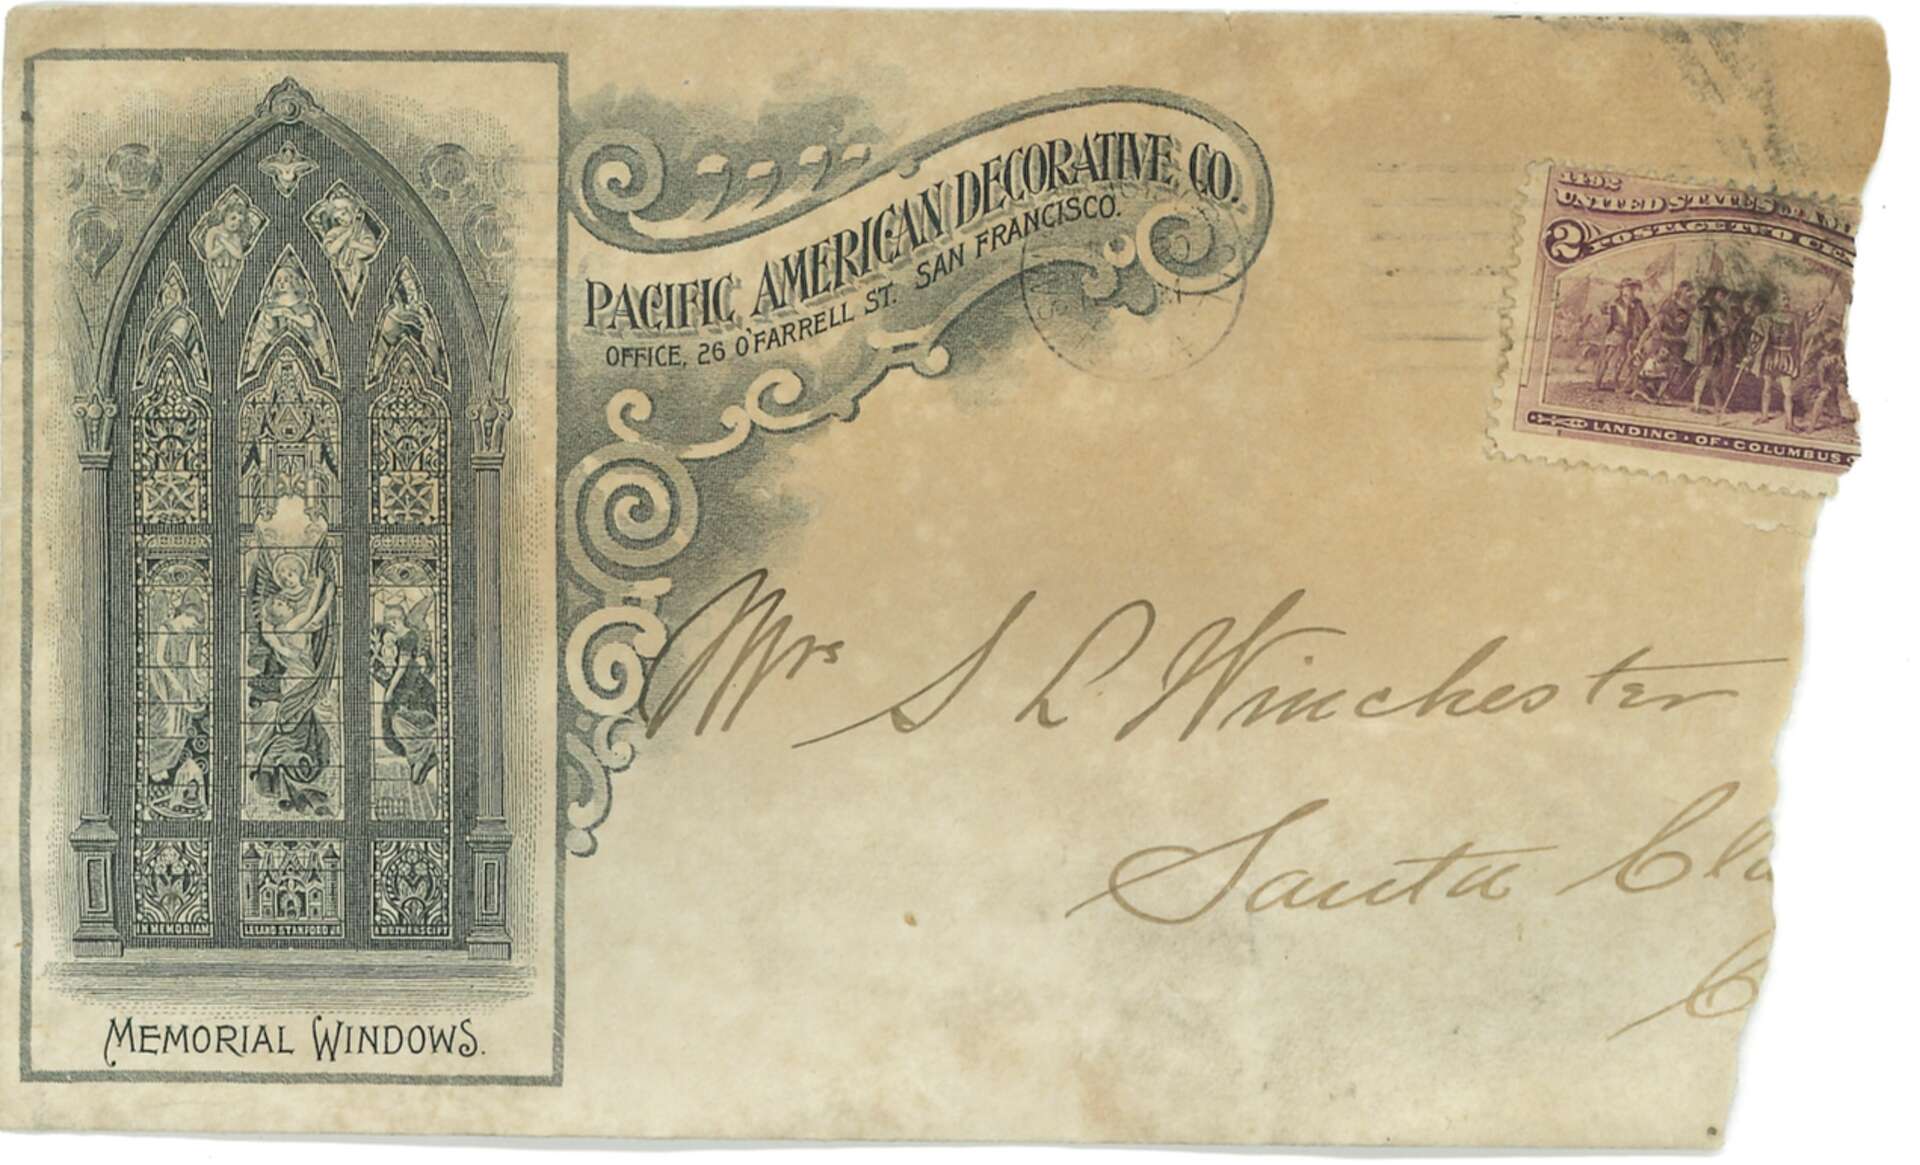 PACIFIC AMERICAN DECORATIVE CO.
OFFICE, 26 O'FARRELL ST. SAN FRANCISCO.
1492
UNITED STATES OF AM
2 POSTAGE TWO CEN
LANDING · OF · COLUMBUS
Mrs S L Winchester
Santa Cla
C
IN MEMORIAM LELAND STANFORD JR A MOTHERS GIFT
MEMORIAL WINDOWS.